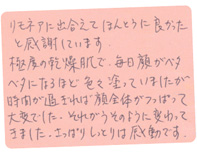 リモネアに出会えてほんとうに良かった
と感謝しています。
極度の乾燥肌で、毎日顔がベタ
ベタになるほど色々塗っていましたが
時間が過ぎれば顔全体がつっぱって
大変でした。それがうそのように変わって
きました。さっぱりしっとりは感動です。